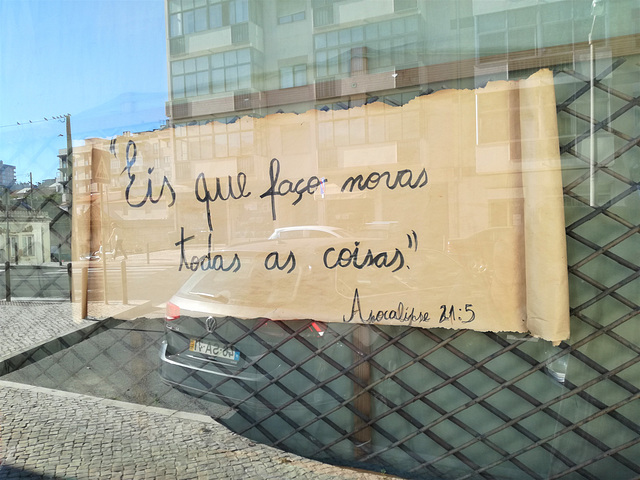 "Eis que faço novas
todas as coisas."
Apocalipse 21:5